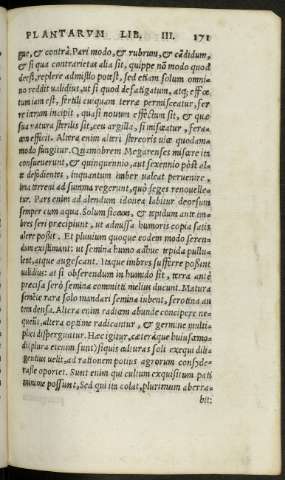 PLANTARVM LIB. III. 171
gue, & contrà. Pari modo, & rubrum, & cādidum,
& si qua contrarietas alia sit, quippe nō modo quod
deest, replere admistio potest, sed etiam solum omni-
no reddit validius, ut si quod defatigatum, atq; effœ
tum iam est, fertili cuiquam terræ permisceatur, fer
re iterum incipit, quasi nouum effectum sit, & quæ
sua natura sterilis sit, ceu argilla, si misceatur, ferā-
cem efficit. Altera enim alteri stercoris uice quodam
modo fungitur. Quamobrem Megarenses miscere ita
consueuerunt, & quinquennio, aut sexennio post al
te defodientes, inquantum imber ualeat peruenire,
ima terreni ad summa regerunt, quò seges renouelle
tur. Pars enim ad alendum idonea labitur deorsum
semper cum aqua. Solum siccum, & tepidum ante im-
bres seri præcipiunt, ut admissa humoris copia satis
alere posset. Et pluuium quoque eodem modo seren-
dum existimant: ut semina humo adhuc tepida pullu-
lent, atque augescant. Itaque imbres sufferre possint
validius: at si obserendum in humido sit, terra ante
precisa serò semina committi melius ducunt. Matura
semēte rara solo mandari semina iubent, serotina au
tem densa. Altera enim radicem abunde concipere ne-
queūt, altera optime radicantur, & germine multi-
plici disperguntur. Hæc igitur, cæteráque huiusmo-
di plura etenim sunt) siquis culturas soli exequi dili-
gentius velit, ad rationem potius agrorum conside-
rasse oportet. Sunt enim qui cultum exquisitum pati
minime possunt, Sed qui ita colat, plurimum aberra-
bit: